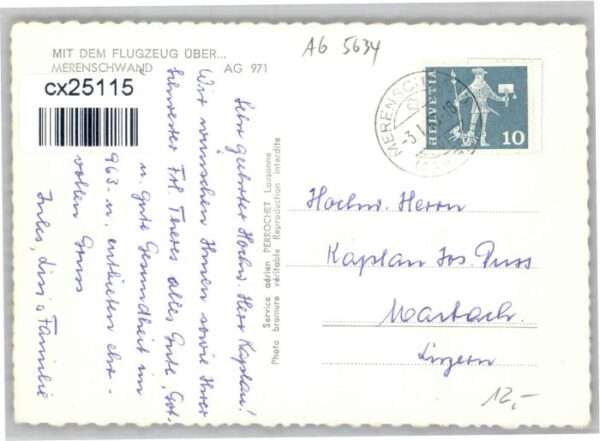 MIT DEM FLUGZEUG ÜBER...
MERENSCHWAND AG 971
cx25115
AG 5634
MERENSCH
HELVETIA
10
Sehr geehrter Hochw. Herr Kaplan!
Wir wünschen Ihnen sowie Ihrer
Schwester Frl. Theres alles Gute, Got-
u. gute Gesundheit im
963. u. entbieten ehr-
vollen Gruss
Familie
Photo Service aérien PERROCHET Lausanne
Photo bromure véritable Reproduction interdite
Hochw. Herrn
Kaplan Jos. Duss
Marbach
Luzern
12,-